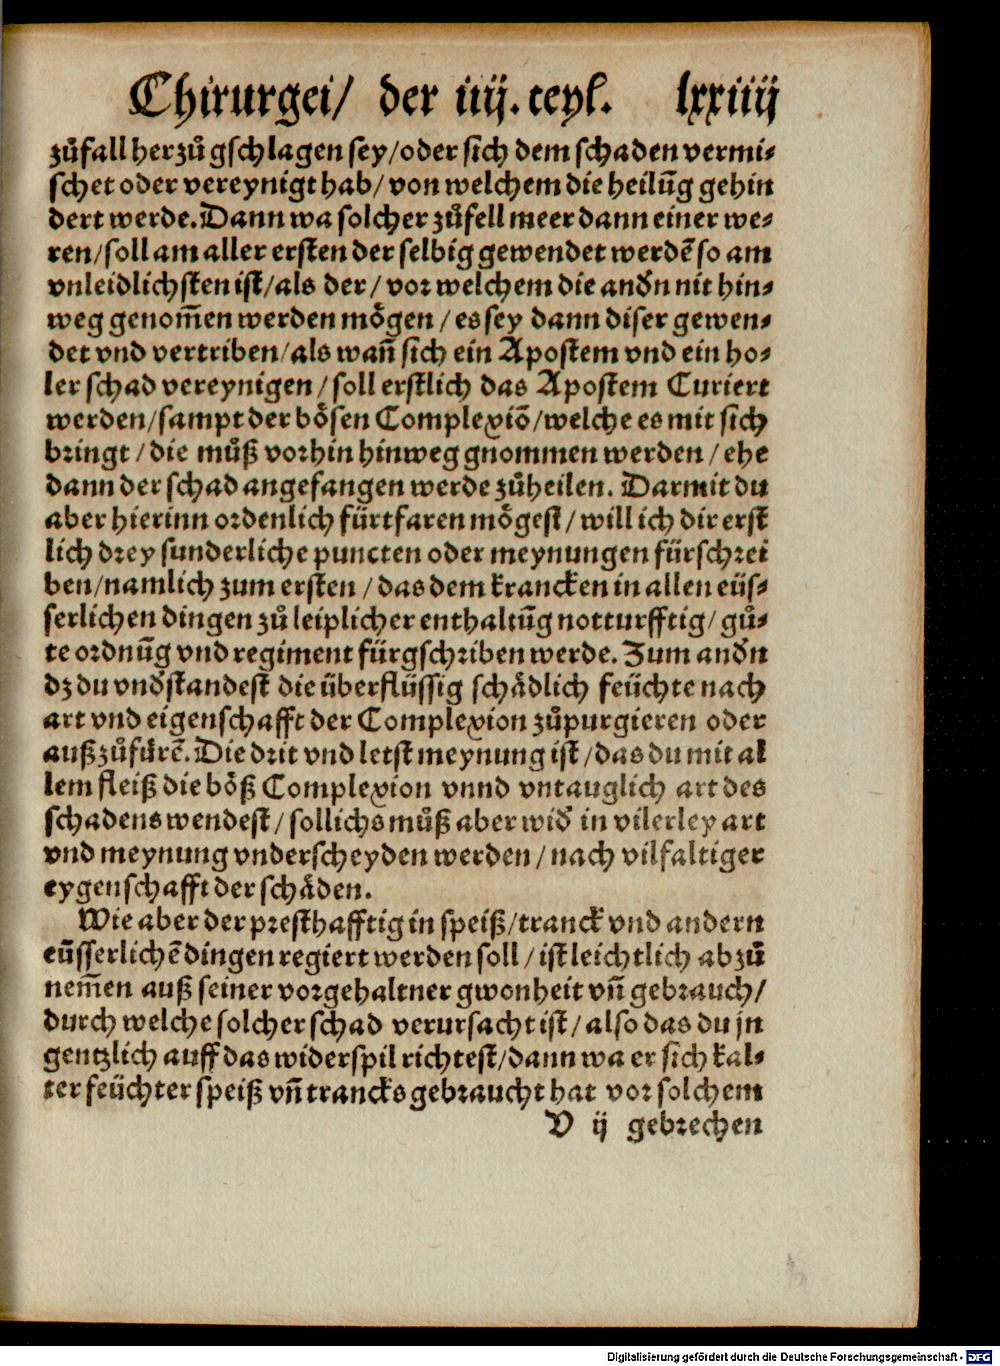 Chirurgei/ der iiij. teyl. lxxiiij
zůfall herzů gschlagen sey/oder sich dem schaden vermi⸗
schet oder vereynigt hab/von welchem die heilũg gehin
dert werde. Dann wa solcher zůfell meer dann einer we⸗
ren/soll am aller ersten der selbig gewendet werdẽ so am
vnleidlichsten ist/als der/vor welchem die andn̄ nit hin⸗
weg genom̄en werden moͤgen/es sey dann diser gewen⸗
det vnd vertriben/als wañ sich ein Apostem vnd ein ho⸗
ler schad vereynigen/soll erstlich das Apostem Curiert
werden/sampt der boͤsen Complexiõ/welche es mit sich
bringt/die můß vorhin hinweg gnommen werden/ehe
dann der schad angefangen werde zůheilen. Darmit du
aber hierinn ordenlich fürtfaren moͤgest/will ich dir erst
lich drey sunderliche puncten oder meynungen fürschrei
ben/namlich zum ersten/das dem krancken in allen eüs⸗
serlichen dingen zů leiplicher enthaltũg notturfftig/gů⸗
te ordnũg vnd regiment fürgschriben werde. Zum andn̄
dz du vnd̄standest die überflüssig schaͤdlich feüchte nach
art vnd eigenschafft der Complexion zůpurgieren oder
außzůfürẽ. Die drit vnd letst meynung ist/das du mit al
lem fleiß die boͤß Complexion vnnd vntauglich art des
schadens wendest/sollichs můß aber wid̄ in vilerley art
vnd meynung vnderscheyden werden/nach vilfaltiger
eygenschafft der schaͤden.
Wie aber der presthafftig in speiß/tranck vnd andern
eüsserlichẽ dingen regiert werden soll/ist leichtlich abzů
nem̄en auß seiner vorgehaltner gwonheit vñ gebrauch/
durch welche solcher schad verursacht ist/also das du jn
gentzlich auff das widerspil richtest/dann wa er sich kal⸗
ter feüchter speiß vñ trancks gebraucht hat vor solchem
V ij gebrechen
Digitalisierung gefördert durch die Deutsche Forschungsgemeinschaft - DFG